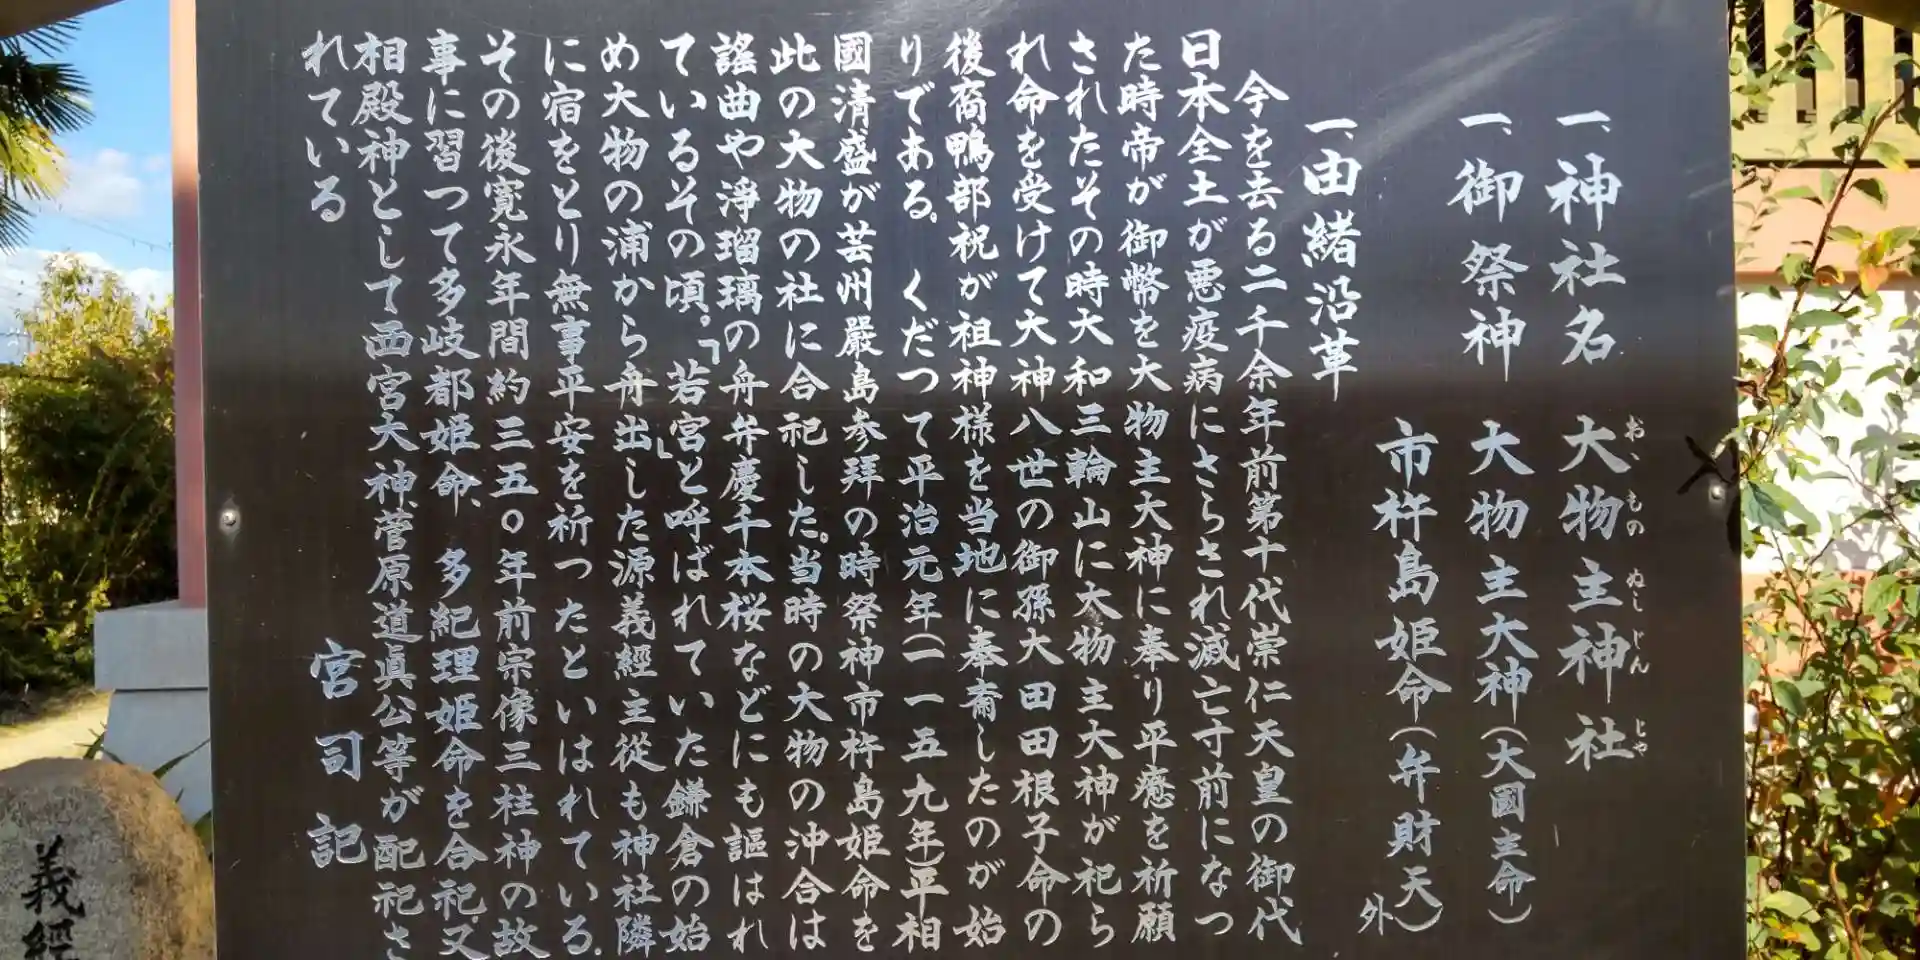 一、神社名 大物主神社
お、もの ぬし じん じゃ
一、御祭神 大物主大神(大國主命)
市杵島姫命(弁財天)外
一、由緒沿革
今を去る二千余年前第十代崇仁天皇の御代
日本全土が悪疫病にさらされ滅亡寸前になつ
た時帝が御幣を大物主大神に奉り平癒を祈願
されたその時大和三輪山に大物主大神が祀ら
れ命を受けて大神八世の御孫大田田根子命の
後裔鴨部祝が祖神様を当地に奉齋したのが始
りである。くだつて平治元年(一一五九年)平相
國清盛が芸州嚴島参拜の時祭神市杵島姫命を
此の大物の社に合祀した。当時の大物の沖合は
謠曲や淨瑠璃の舟弁慶千本桜などにも謳はれ
ているその頃。「若宮」と呼ばれていた鎌倉の始
め大物の浦から舟出した源義經主従も神社隣
に宿をとり無事平安を祈つたといはれている。
その後寛永年間約三五〇年前宗像三柱神の故
事に習つて多岐都姫命、多紀理姫命を合祀、又
相殿神として西宮大神、菅原道眞公等が配祀さ
れている
宮司記
義經